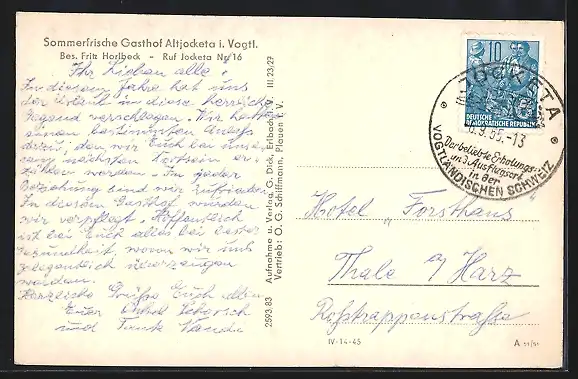 Sommerfrische Gasthof Altjocketa i. Vogtl.
Bes. Fritz Horlbeck - Ruf Jocketa Nr. 16
Ihr Lieben alle!
In diesem Jahre hat uns
der Urlaub in diese herrliche
Gegend verschlagen. Wir hatten
einen bestimmten Anlass
dazu, den wir Euch bei
nächsten er-
zählen werden. In jeder
Beziehung sind wir zufrieden.
In diesem Gasthof wurden
wir verpflegt. Hoffentlich
ist bei Euch alles bei bester
Gesundheit, wovon wir uns
gelegentlich überzeugen
werden.
Herzliche Grüße Euch allen
Euer
und Tante
Aufnahme u. Verlag. G. Dick, Erlbach i. V. III.23/29
Vertrieb: O. G. Schiffmann, Plauen i. V.
2593.83
10
DEUTSCHE
DEMOKRATISCHE REPUBLIK
JOCKETA
6.9.55.-13
Der beliebte Erholungs-
un' Ausflugsort
in der
VOGTLÄNDISCHEN SCHWEIZ
Hotel „Forsthaus
Thale a/ Harz
Roßtrappenstraße
IV-14-45
A